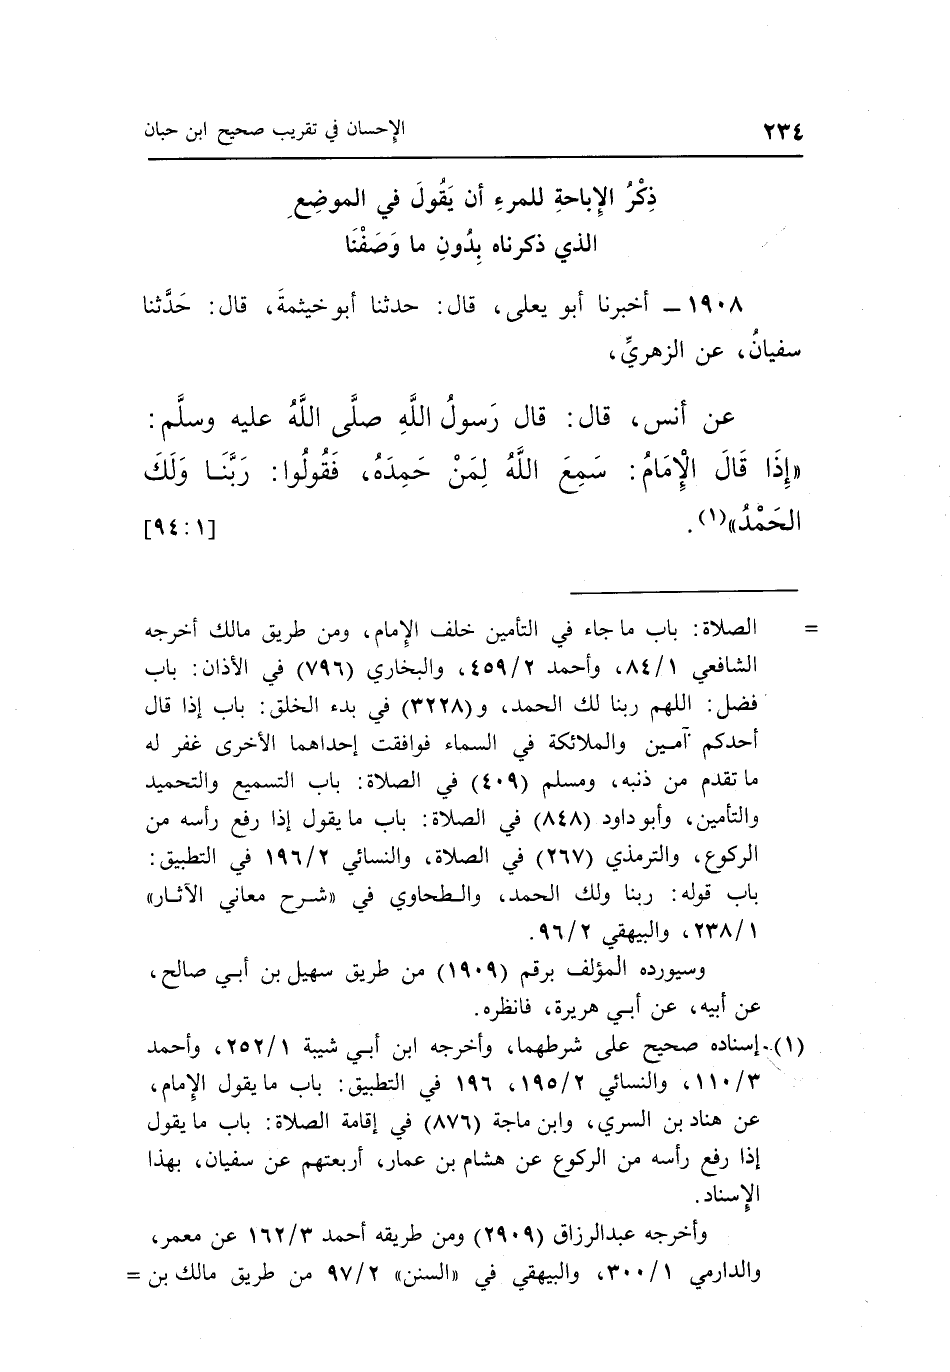 ٢٣٤ الإحسان في تقريب صحيح ابن حبان
ذِكْرُ الإِباحةِ للمرءِ أن يَقُولَ في الموضِعِ
الذي ذكرناه بِدُونِ ما وَصَفْنَا
١٩٠٨ ـ أخبرنا أبو يعلى، قال: حدثنا أبو خيثمةَ، قال: حَدَّثنا
سفيانُ، عن الزهريِّ،
عن أنس، قال: قال رَسولُ اللَّهِ صلَّى اللَّهُ عليه وسلَّم:
«إِذَا قَالَ الْإِمَامُ: سَمِعَ اللَّهُ لِمَنْ حَمِدَهُ، فَقُولُوا: رَبَّنَا وَلَكَ
الحَمْدُ»(١). [١:٩٤]
= الصلاة: باب ما جاء في التأمين خلف الإمام، ومن طريق مالك أخرجه
الشافعي ٨٤/١، وأحمد ٤٥٩/٢، والبخاري (٧٩٦) في الأذان: باب
فضل: اللهم ربنا لك الحمد، و(٣٢٢٨) في بدء الخلق: باب إذا قال
أحدكم آمين والملائكة في السماء فوافقت إحداهما الأخرى غفر له
ما تقدم من ذنبه، ومسلم (٤٠٩) في الصلاة: باب التسميع والتحميد
والتأمين، وأبو داود (٨٤٨) في الصلاة: باب ما يقول إذا رفع رأسه من
الركوع، والترمذي (٢٦٧) في الصلاة، والنسائي ١٩٦/٢ في التطبيق:
باب قوله: ربنا ولك الحمد، والطحاوي في «شرح معاني الآثار»
٢٣٨/١، والبيهقي ٩٦/٢.
وسيورده المؤلف برقم (١٩٠٩) من طريق سهيل بن أبي صالح،
عن أبيه، عن أبي هريرة، فانظره.
(١) إسناده صحيح على شرطهما، وأخرجه ابن أبي شيبة ٢٥٢/١، وأحمد
١١٠/٣، والنسائي ١٩٥/٢، ١٩٦ في التطبيق: باب ما يقول الإمام،
عن هناد بن السري، وابن ماجة (٨٧٦) في إقامة الصلاة: باب ما يقول
إذا رفع رأسه من الركوع عن هشام بن عمار، أربعتهم عن سفيان، بهذا
الإسناد.
وأخرجه عبدالرزاق (٢٩٠٩) ومن طريقه أحمد ١٦٢/٣ عن معمر،
والدارمي ٣٠٠/١، والبيهقي في «السنن» ٩٧/٢ من طريق مالك بن =